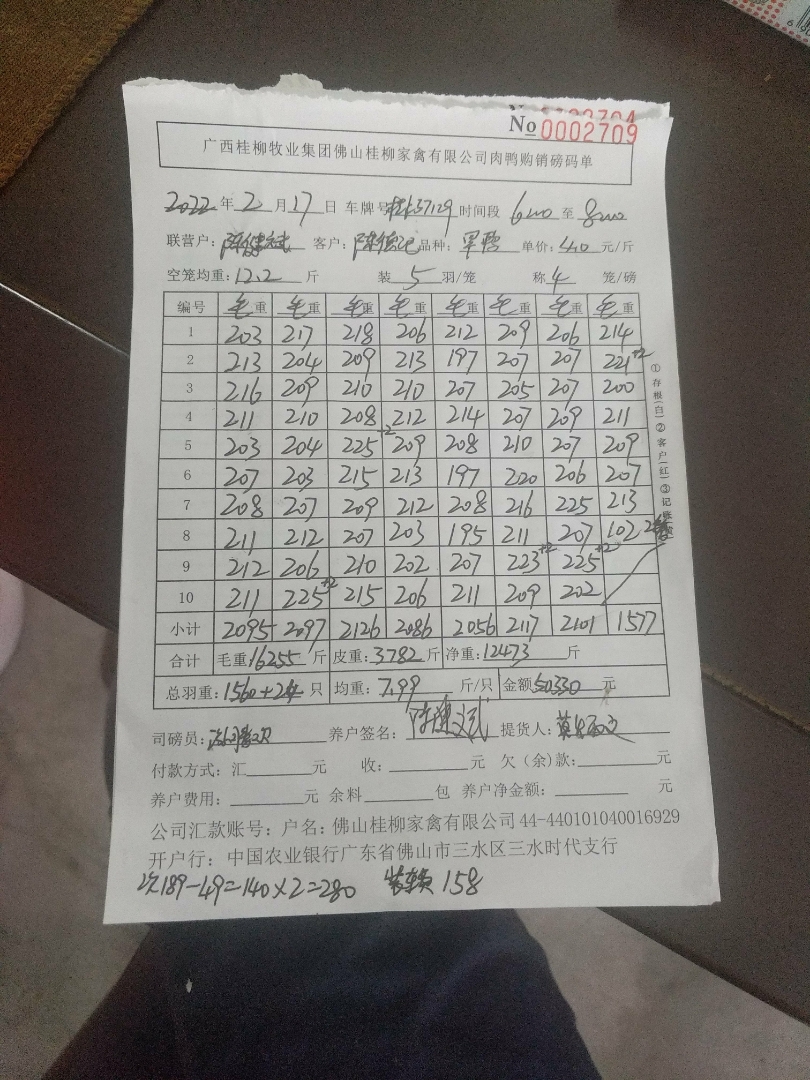 No 0002709
广西桂柳牧业集团佛山桂柳家禽有限公司肉鸭购销磅码单
2022年2月17日 车牌号 37129 时间段 6:00 至 8:00
联营户: 客户: 陈德记 品种: 单价: 4.0 元/斤
空笼均重: 12.2 斤 装 5 羽/笼 称 4 笼/磅
编号 毛重 毛重 毛重 毛重 毛重 毛重 毛重 毛重
1 203 217 218 206 212 209 206 214
2 213 204 209 213 197 207 207 221+2
3 216 209 210 210 207 205 207 200
4 211 210 208 212 214 207 209 211
5 203 204 225+2 209 208 210 207 209
6 207 203 215 213 197 220 206 207
7 208 207 209 212 208 216 225 213
8 211 212 207 203 195 211 207 102
9 212 206 210 202 207 223+2 225+2
10 211 225+2 215 206 211 209 202
小计 2095 2097 2126 2086 2056 2117 2101 1577
合计 毛重 16255 斤 皮重: 3782 斤 净重: 12473 斤
总羽重: 1560+2 只 均重: 7.99 斤/只 金额 50330 元
司磅员: 养户签名: 提货人:
付款方式: 汇 元 收: 元 欠(余)款: 元
养户费用: 元 余料 包 养户净金额: 元
公司汇款账号: 户名: 佛山桂柳家禽有限公司 44-440101040016929
开户行: 中国农业银行广东省佛山市三水区三水时代支行
次189-49=140×2=280 158
①存根(白)②客户(红)③记账